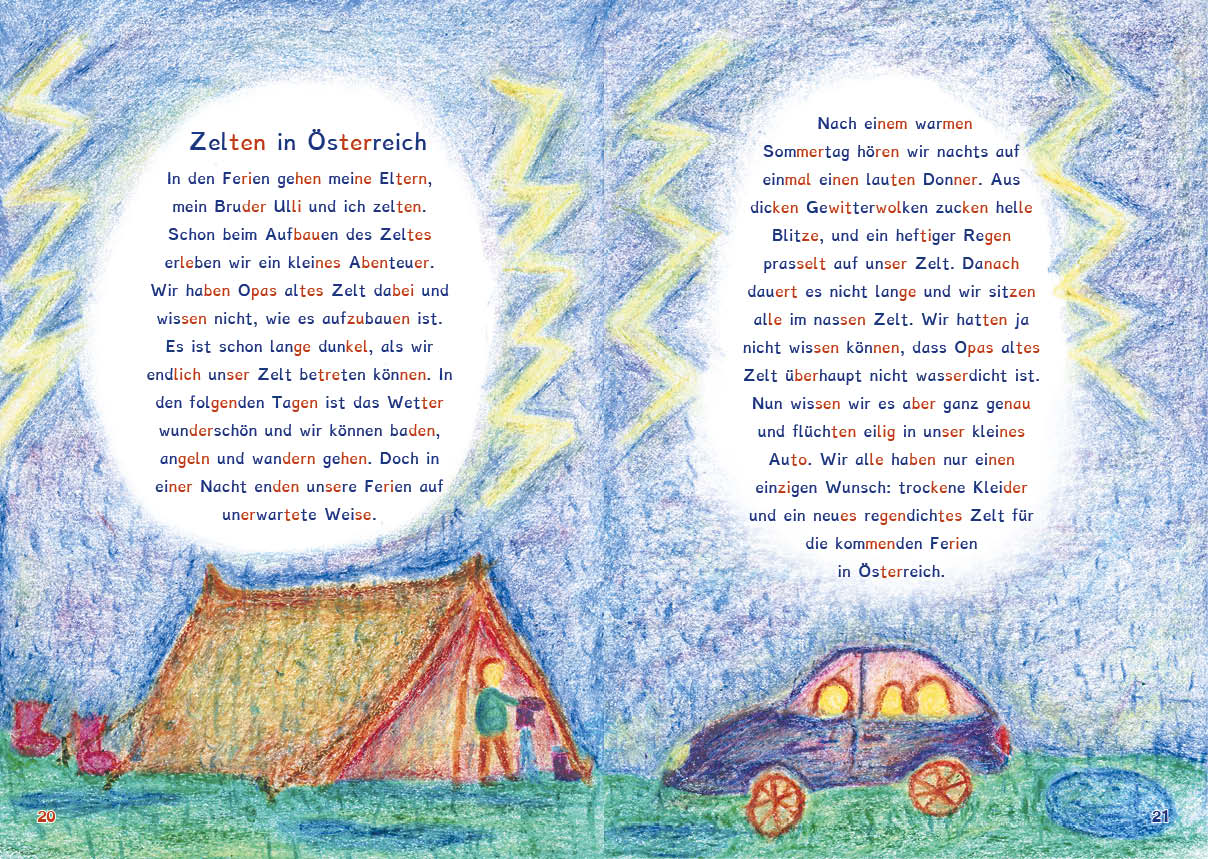 Zelten in Österreich
In den Ferien gehen meine Eltern,
mein Bruder Ulli und ich zelten.
Schon beim Aufbauen des Zeltes
erleben wir ein kleines Abenteuer.
Wir haben Opas altes Zelt dabei und
wissen nicht, wie es aufzubauen ist.
Es ist schon lange dunkel, als wir
endlich unser Zelt betreten können. In
den folgenden Tagen ist das Wetter
wunderschön und wir können baden,
angeln und wandern gehen. Doch in
einer Nacht enden unsere Ferien auf
unerwartete Weise.
20
Nach einem warmen
Sommertag hören wir nachts auf
einmal einen lauten Donner. Aus
dicken Gewitterwolken zucken helle
Blitze, und ein heftiger Regen
prasselt auf unser Zelt. Danach
dauert es nicht lange und wir sitzen
alle im nassen Zelt. Wir hatten ja
nicht wissen können, dass Opas altes
Zelt überhaupt nicht wasserdicht ist.
Nun wissen wir es aber ganz genau
und flüchten eilig in unser kleines
Auto. Wir alle haben nur einen
einzigen Wunsch: trockene Kleider
und ein neues regendichtes Zelt für
die kommenden Ferien
in Österreich.
21